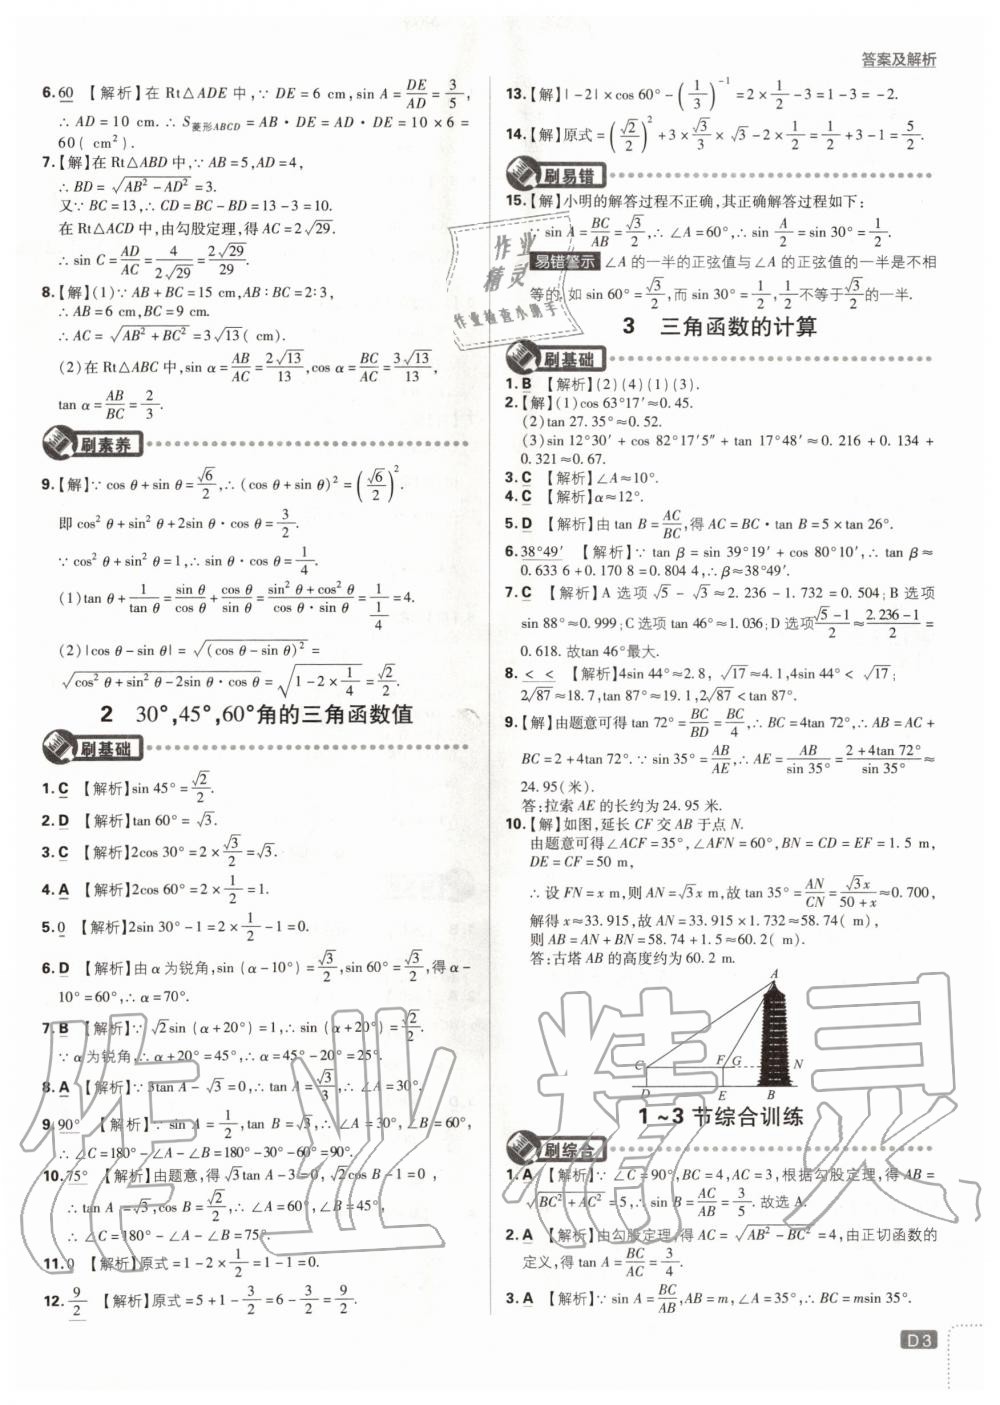 答案及解析
6. 60 【解析】在 Rt△ADE 中,∵ DE=6 cm, sin A=DE/AD=3/5,
∴ AD=10 cm. ∴ S菱形ABCD=AB·DE=AD·DE=10×6=
60( cm²).
7.【解】在 Rt△ABD 中,∵ AB=5,AD=4,
∴ BD=√(AB²-AD²)=3.
又∵ BC=13,∴ CD=BC-BD=13-3=10.
在 Rt△ACD 中,由勾股定理,得 AC=2√29.
∴ sin C=AD/AC=4/(2√29)=2√29/29.
8.【解】(1)∵ AB+BC=15 cm,AB∶BC=2∶3,
∴ AB=6 cm,BC=9 cm.
∴ AC=√(AB²+BC²)=3√13( cm).
(2)在 Rt△ABC 中,sin α=AB/AC=2√13/13,cos α=BC/AC=3√13/13,
tan α=AB/BC=2/3.
刷素养
9.【解】∵ cos θ+sin θ=√6/2,∴ (cos θ+sin θ)²=(√6/2)².
即 cos² θ+sin² θ+2sin θ·cos θ=3/2.
∵ cos² θ+sin² θ=1,∴ sin θ·cos θ=1/4.
(1)tan θ+1/tan θ=sin θ/cos θ+cos θ/sin θ=(sin² θ+cos² θ)/(cos θ·sin θ)=1/(1/4)=4.
(2)|cos θ-sin θ|=√((cos θ-sin θ)²)=
√(cos² θ+sin² θ-2sin θ·cos θ)=√(1-2×1/4)=√2/2.
2 30°,45°,60°角的三角函数值
刷基础
1. C 【解析】sin 45°=√2/2.
2. D 【解析】tan 60°=√3.
3. C 【解析】2cos 30°=2×√3/2=√3.
4. A 【解析】2cos 60°=2×1/2=1.
5. 0 【解析】2sin 30°-1=2×1/2-1=0.
6. D 【解析】由 α 为锐角,sin (α-10°)=√3/2,sin 60°=√3/2,得 α-
10°=60°,∴ α=70°.
7. B 【解析】∵ √2sin (α+20°)=1,∴ sin (α+20°)=√2/2.
∵ α 为锐角,∴ α+20°=45°,∴ α=45°-20°=25°.
8. A 【解析】∵ 3tan A-√3=0,∴ tan A=√3/3,∴ ∠A=30°.
9. 90° 【解析】∵ sin A=1/2,tan B=√3,∴ ∠A=30°,∠B=60°,
∴ ∠C=180°-∠A-∠B=180°-30°-60°=90°.
10. 75° 【解析】由题意,得√3tan A-3=0,√2cos B-1=0,
∴ tan A=√3,cos B=√2/2,∴ ∠A=60°,∠B=45°,
∴ ∠C=180°-∠A-∠B=75°.
11. 0 【解析】原式=1-2×1/2=1-1=0.
12. 9/2 【解析】原式=5+1-3/2=6-3/2=9/2.
13.【解】|-2|×cos 60°-(1/3)⁻¹=2×1/2-3=1-3=-2.
14.【解】原式=(√2/2)²+3×√3/3×√3-2×1/2=1/2+3-1=5/2.
刷易错
15.【解】小明的解答过程不正确,其正确解答过程如下:
∵ sin A=BC/AB=√3/2,∴ ∠A=60°,∴ sin A/2=sin 30°=1/2.
易错警示 ∠A 的一半的正弦值与∠A 的正弦值的一半是不相
等的,如 sin 60°=√3/2,而 sin 30°=1/2,1/2不等于√3/2的一半.
作业
精灵
作业检查小助手
3 三角函数的计算
刷基础
1. B 【解析】(2)(4)(1)(3).
2.【解】(1)cos 63°17′≈0.45.
(2)tan 27.35°≈0.52.
(3)sin 12°30′+cos 82°17′5″+tan 17°48′≈0.216+0.134+
0.321≈0.67.
3. C 【解析】∠A≈10°.
4. C 【解析】α≈12°.
5. D 【解析】由 tan B=AC/BC,得 AC=BC·tan B=5×tan 26°.
6. 38°49′ 【解析】∵ tan β=sin 39°19′+cos 80°10′,∴ tan β≈
0.633 6+0.170 8=0.804 4,∴ β≈38°49′.
7. C 【解析】A 选项√5-√3≈2.236-1.732=0.504;B 选项
sin 88°≈0.999;C 选项 tan 46°≈1.036;D 选项(√5-1)/2≈(2.236-1)/2=
0.618. 故tan 46°最大.
8. < < 【解析】4sin 44°≈2.8,√17≈4.1,4sin 44°<√17;
2√87≈18.7,tan 87°≈19.1,2√87<tan 87°.
9.【解】由题意可得 tan 72°=BC/BD=BC/4,∴ BC=4tan 72°,∴ AB=AC+
BC=2+4tan 72°.∵ sin 35°=AB/AE,∴ AE=AB/sin 35°=(2+4tan 72°)/sin 35°≈
24.95(米).
答:拉索 AE 的长约为 24.95 米.
10.【解】如图,延长 CF 交 AB 于点 N.
由题意可得∠ACF=35°,∠AFN=60°,BN=CD=EF=1.5 m,
DE=CF=50 m,
∴ 设 FN=x m,则 AN=√3x m,故 tan 35°=AN/CN=√3x/(50+x)≈0.700,
解得 x≈33.915,故 AN=33.915×1.732≈58.74( m),
则 AB=AN+BN=58.74+1.5≈60.2( m).
答:古塔 AB 的高度约为 60.2 m.
A
C F G N
D E B
1~3 节综合训练
刷综合
1. A 【解析】∵ ∠C=90°,BC=4,AC=3,根据勾股定理,得 AB=
√(BC²+AC²)=5,∴ sin B=AC/AB=3/5. 故选 A.
2. A 【解析】由勾股定理,得 AC=√(AB²-BC²)=4,由正切函数的
定义,得 tan A=BC/AC=3/4.
3. A 【解析】∵ sin A=BC/AB,AB=m,∠A=35°,∴ BC=msin 35°.
作业精灵
D3